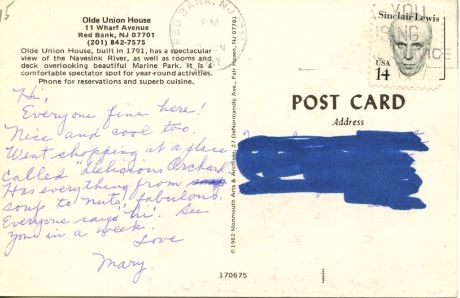 15
Olde Union House
11 Wharf Avenue
Red Bank, NJ 07701
(201) 842-7575
Olde Union House, built in 1791, has a spectacular
view of the Navesink River, as well as rooms and
deck overlooking beautiful Marine Park. It is a
comfortable spectator spot for year-round activities.
Phone for reservations and superb cuisine.
Hi,
Everyone fine here!
Nice and cool too.
Went shopping at a place
called "Delicious Orchard
Has everything from
soup to nuts, fabulous.
Everyone says 'hi'. See
you in a week.
Love
Mary
RED BANK, NJ
PM
©1982 Monmouth Arts & Archives, 27 DeNormandie Ave., Fair Haven, NJ 07701
YOU
USING
Sinclair Lewis
USA
14
POST CARD
Address
170675